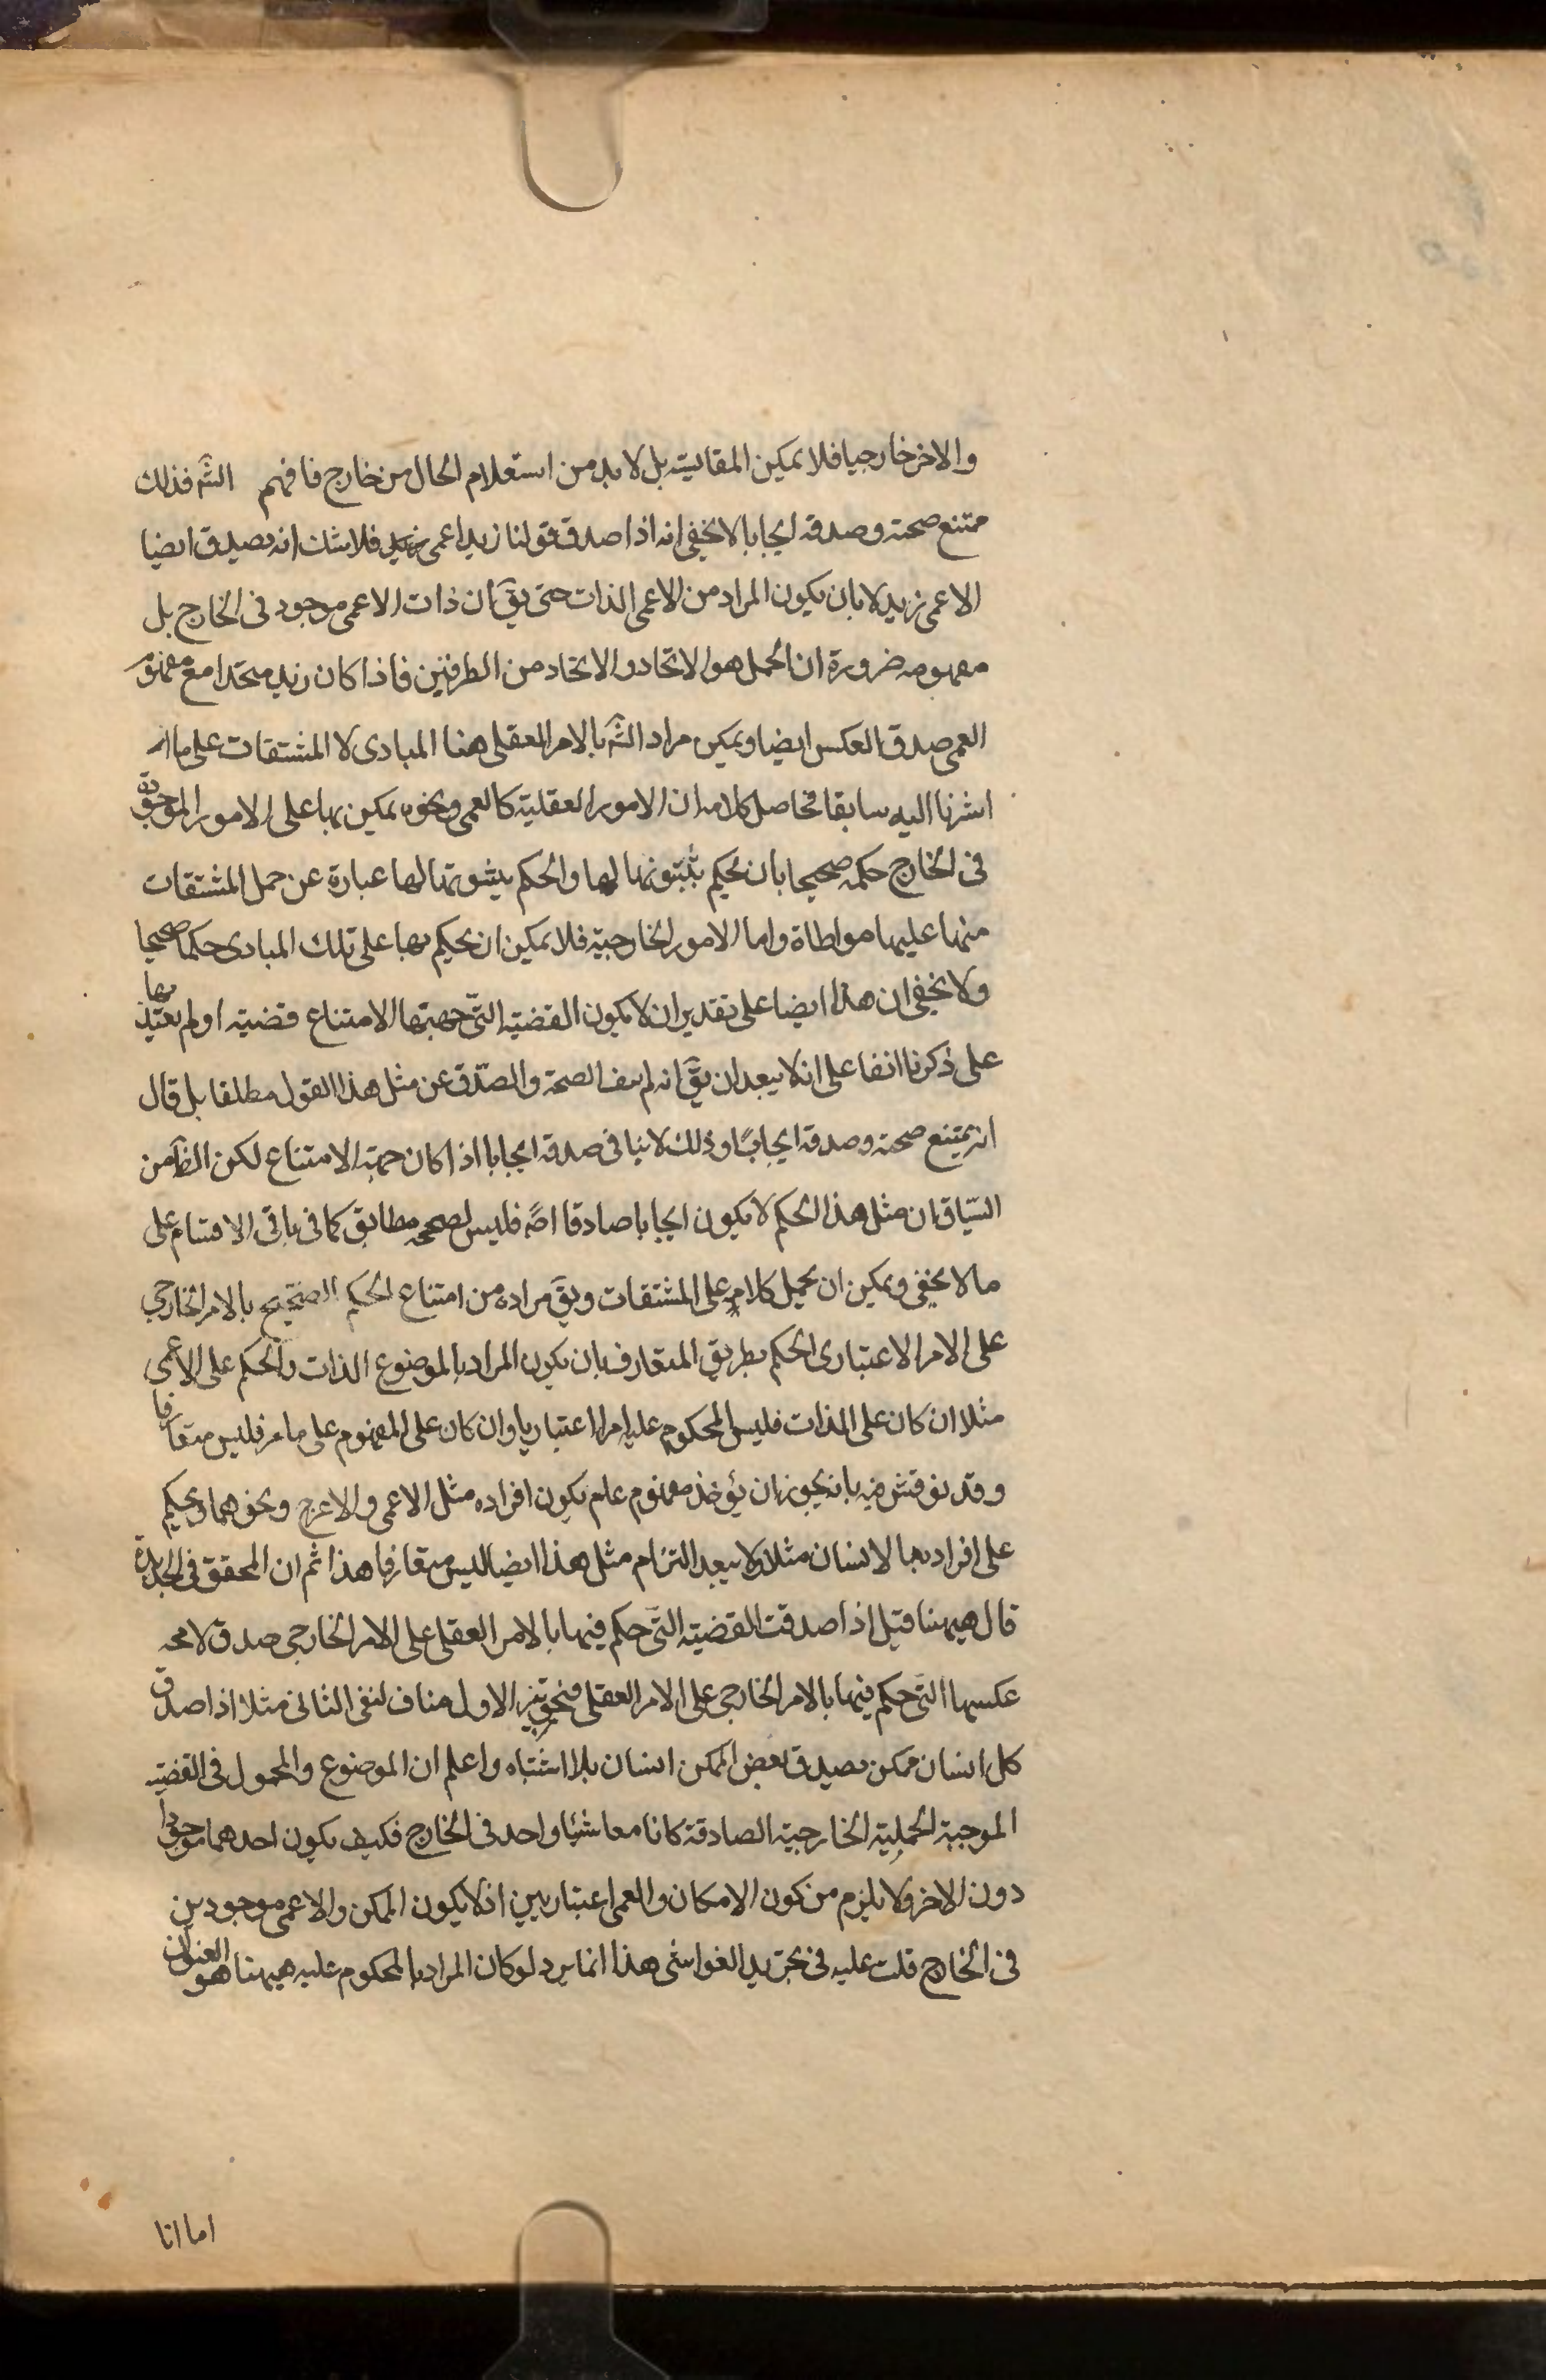 والاخر خارجيا فلا يمكن المقايسة بل لا بد من استعلام الحال من خارج فافهم الشَ فذلك
ممتنع صحته وصدقه ايجابا لا يخفى انه اذا صدق قولنا زيد اعمى فلا شك انه يصدق ايضا
الاعمى زيد لا بان يكون المراد من الاعمى الذات حتى يقَ ان ذات الاعمى موجود فى الخارج بل
مفهومه ضرورة ان الحمل هو الاتحاد والاتحاد من الطرفين فاذا كان زيد متحدا مع مفهوم
العمى صدق العكس ايضا ويمكن مراد الشَ بالامر العقلى هنا المبادى لا المشتقات على ما
اشرنا اليه سابقا فحاصل كلامه ان الامور العقلية كالعمى ونحوه يمكن بها على الامور الموجودة
فى الخارج حكمه صحيحا بان نحكم بثبوتها لها والحكم بثبوتها لها عبارة عن حمل المشتقات
منها عليها مواطاة واما الامور الخارجية فلا يمكن ان يحكم بها على تلك المبادى حكما صحيحا
ولا يخفى ان هذا ايضا على تقدير ان لا يكون القضية التى جهتها الامتناع قضية او لم يعتد بها
على ذكرنا انفا على انه لا يبعد ان يقَ انه لم ينف الصحة والصدق عن مثل هذا القول مطلقا بل قال
انه يمتنع صحته وصدقه ايجابًا وذلك لا ينافى صدقه ايجابا اذا كان جهته الامتناع لكن الظَ من
السّياق ان مثل هذا الحكم لا يكون ايجابا صادقا اصَ فليس لصحته مطابق كما فى باقى الاقسام على
ما لا يخفى ويمكن ان يحمل كلامه على المشتقات ويقَ مراده من امتناع الحكم الصحيح بالامر الخارجى
على الامر الاعتبارى الحكم بطريق المتعارف بان يكون المراد بالموضوع الذات والحكم على الاعمى
مثلا ان كان على الذات فليس المحكوم عليه امرا اعتباريا وان كان على المفهوم على ما مر فليس متعارفا
وقد نوقش فيه بانه يجوز ان يؤخذ مفهوم عام يكون افراده مثل الاعمى والاعرج ونحوهما ويحكم
على افراده بها لانسان مثلا ولا يبعد التزام مثل هذا ايضا ليس متعارفا هذا ثم ان المحقق فى الجديدة
قال هيهنا قيل اذا صدقت القضية التى حكم فيها بالامر العقلى على الامر الخارجى صدق لا محه
عكسها التى حكم فيها بالامر الخارجى على الامر العقلى فتجويز الاول مناف لنفى الثانى مثلا اذا صدق
كل انسان ممكن يصدق بعض الممكن انسان بلا اشتباه واعلم ان الموضوع والمحمول فى القضية
الموجبة الحملية الخارجية الصادقة كانا معا شيئا واحد فى الخارج فكيف يكون احدهما موجودا
دون الاخر ولا يلزم من كون الامكان والعمى اعتباريين اذ لا يكون الممكن والاعمى موجودين
فى الخارج قلت عليه فى تجريد الغواشى هذا انما يرد لو كان المراد بالمحكوم عليه هيهنا هو العنوان
اما انا